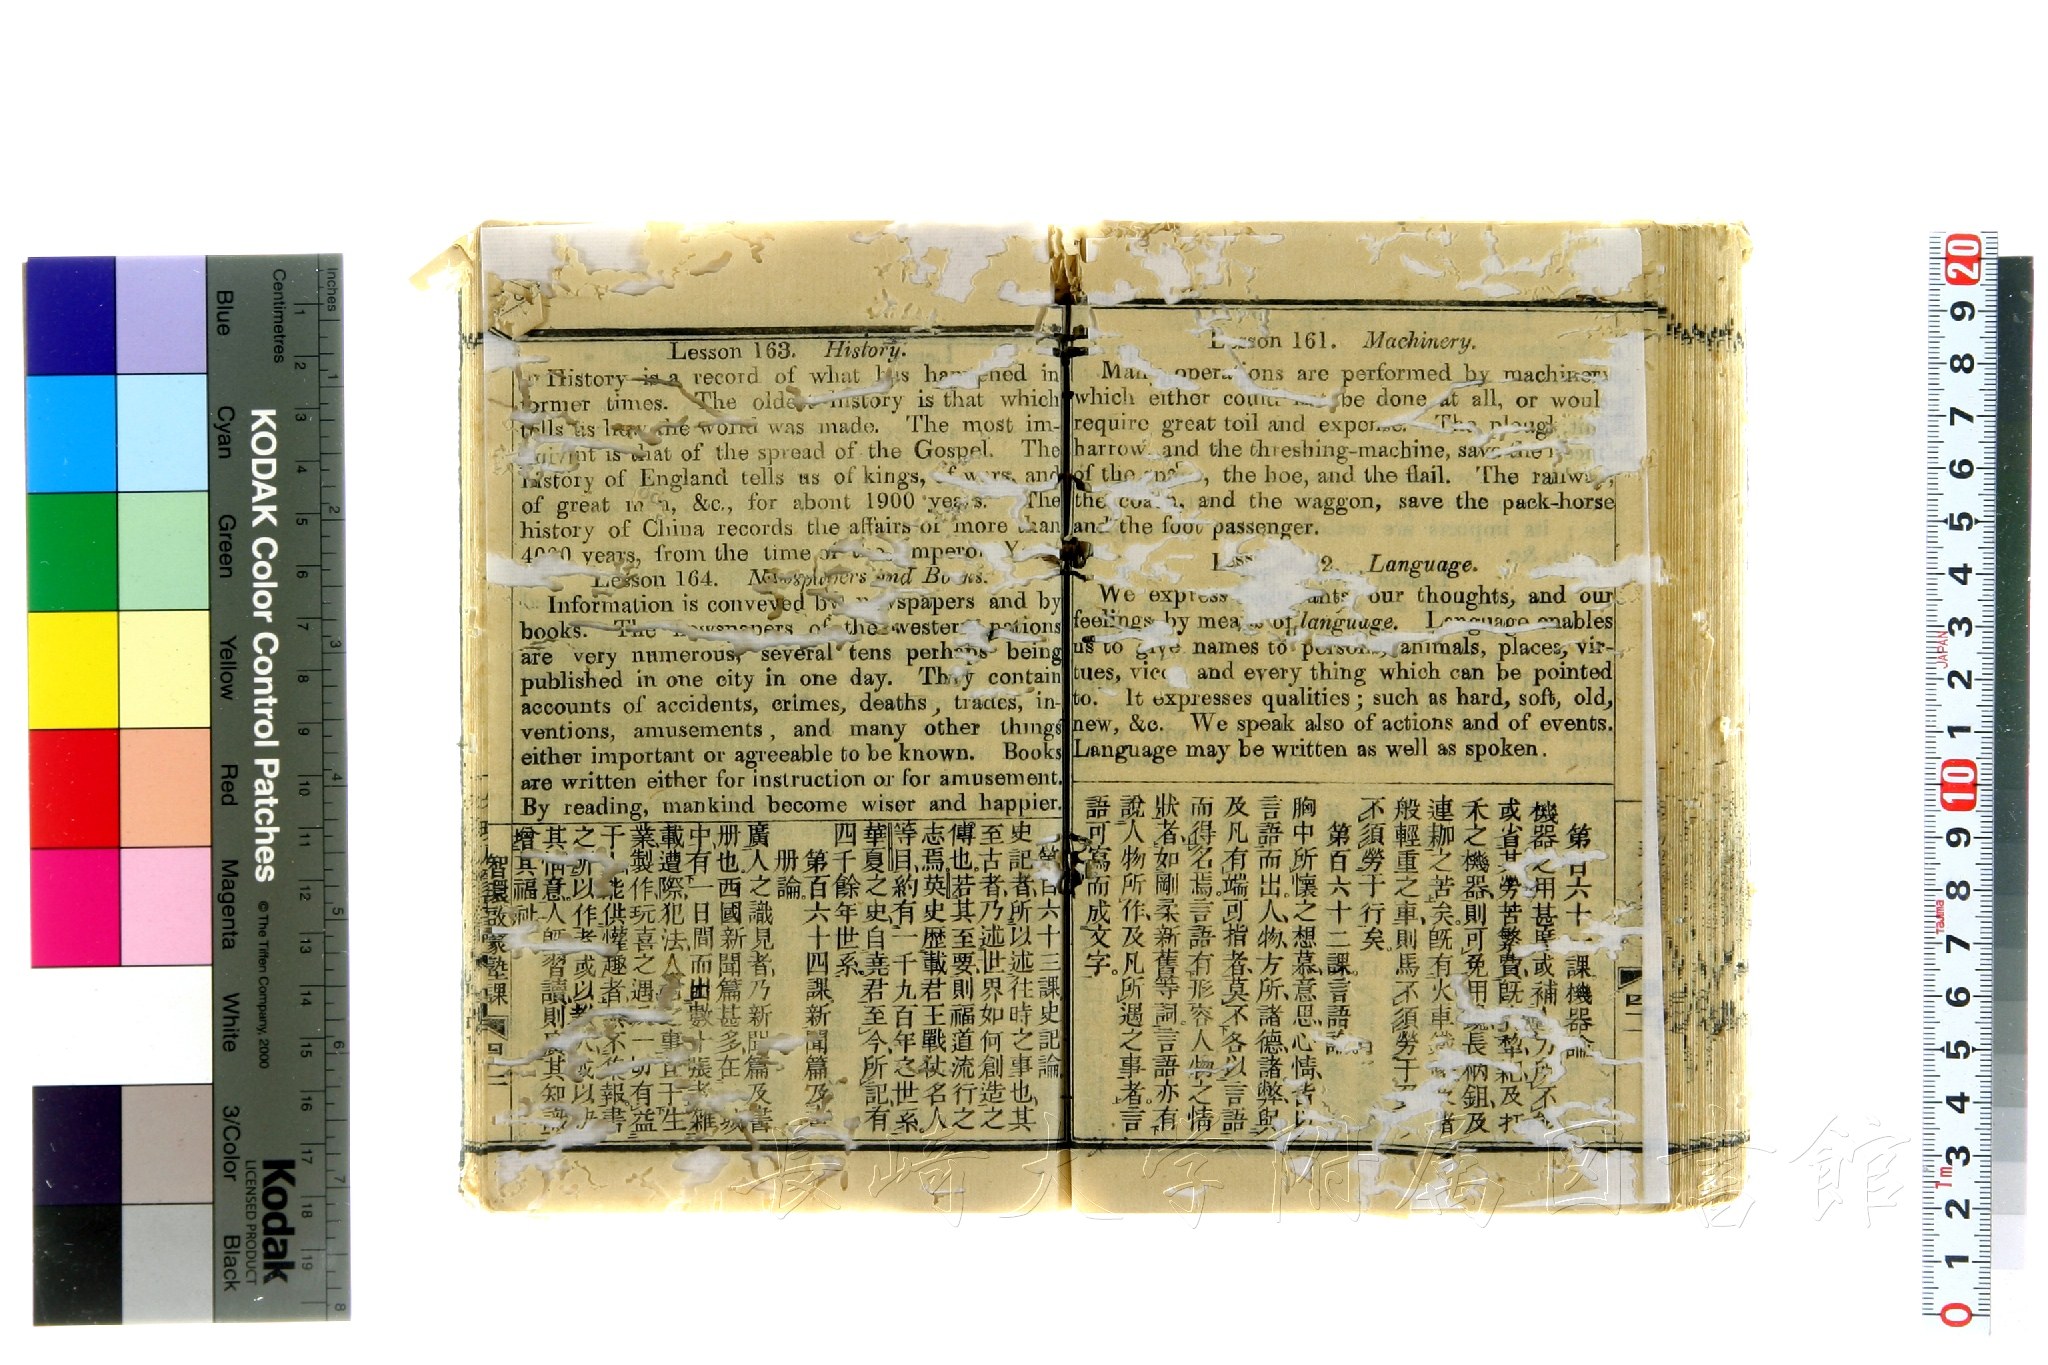 Lesson 161. Machinery.
operations are performed by machinery
which either be done at all, or
require great toil and expense. The
harrow and the threshing-machine, save the
of the the hoe, and the flail. The railway,
the and the waggon, save the pack-horse
and the foot passenger.
Language.
We express our thoughts, and our
feelings by means of language. Language enables
us to give names to persons, animals, places, vir-
tues, and every thing which can be pointed
to. It expresses qualities; such as hard, soft, old,
new, &c. We speak also of actions and of events.
Language may be written as well as spoken.
課機器論
機器之用甚
或省其勞苦繁費
禾之機器則可免用
連耞之苦矣既有火車
般輕重之車則馬不須勞于
不須勞于行矣
第百六十二課言語論
胸中所懷之想慕意思心情皆以
言語而出人物方所諸德諸弊與
及凡有端可指者莫不各以言語
而得名焉言語有形容人物之情
狀者如剛柔新舊等詞言語亦有
說人物所作及凡所遇之事者言
語可寫而成文字
Lesson 163. History.
History is a record of what has happened in
former times. The oldest history is that which
tells us how the world was made. The most im-
is that of the spread of the Gospel. The
history of England tells us of kings, of wars, and
of great &c., for about 1900 years. The
history of China records the affairs of more than
years, from the time
Lesson 164. Newspapers and Books.
Information is conveyed by newspapers and by
books. The newspapers of the western nations
are very numerous, several tens perhaps being
published in one city in one day. They contain
accounts of accidents, crimes, deaths, trades, in-
ventions, amusements, and many other things
either important or agreeable to be known. Books
are written either for instruction or for amusement.
By reading, mankind become wiser and happier.
六十三課史記論
史記者所以述往時之事也其
至古者乃述世界如何創造之
傳也若其至要則福道流行之
志焉英史歷載君王戰仗名人
等目約有一千九百年之世系
華夏之史自堯君至今所記有
四千餘年世系
第百六十四課新聞篇及書
册論
廣人之識見者乃新聞篇及書
册也西國新聞篇甚多在一城
中有一日間而出數十張者雜
載遭際犯法人
業製作玩喜之遇
能供懽趣者
之所以作者或以
其人既習讀則
增其福祉
智環啟蒙塾課
KODAK Color Control Patches
© The Tiffen Company, 2000
Kodak
LICENSED PRODUCT
Inches
Centimetres
Blue
Cyan
Green
Yellow
Red
Magenta
White
3/Color
Black
1 2 3 4 5 6 7 8 9 10 11 12 13 14 15 16 17 18 19
1 2 3 4 5 6 7 8
20
9
8
7
6
5
4
3
2
1
10
9
8
7
6
5
4
3
2
1
0
JAPAN
Tajima
1m
長崎大学附属図書館